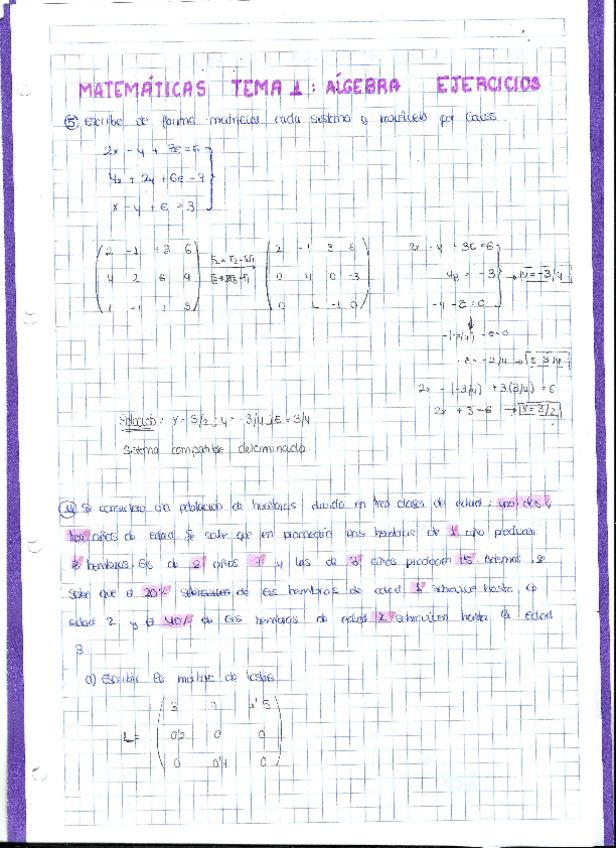 MATEMÁTICAS TEMA 1: ÁLGEBRA EJERCICIOS
⑤ Escribe de forma matricial cada sistema y resuélvelo por Gauss
2x - y + 3z = 6
4x + 2y + 6z = 9
x - y + z = 3
2 -1 +3 6
4 2 6 9
1 -1 1 3
2 -1 3 6
0 4 0 -3
2x - y + 3z = 6
4y = -3 → y = -3/4
-y - z = 0
z = 3/4
2x - (-3/4) + 3(3/4) = 6
2x + 3 = 6 → x = 3/2
Solución: x = 3/2; y = -3/4; z = 3/4
Sistema compatible determinado
④ Se considera una población de hembras dividida en tres clases de edad: uno, dos y
tres años de edad. Se sabe que en promedio las hembras de 1 año producen
3 hembras, las de 2 años 7 y las de 3 años producen 1'5. Además, se
sabe que el 20% de las hembras de edad 1 sobrevive hasta la
edad 2 y el 40% de las hembras de edad 2 sobreviven hasta la edad
3.
a) Escribir la matriz de Leslie
L=
3 7 1'5
0'2 0 0
0 0'4 0